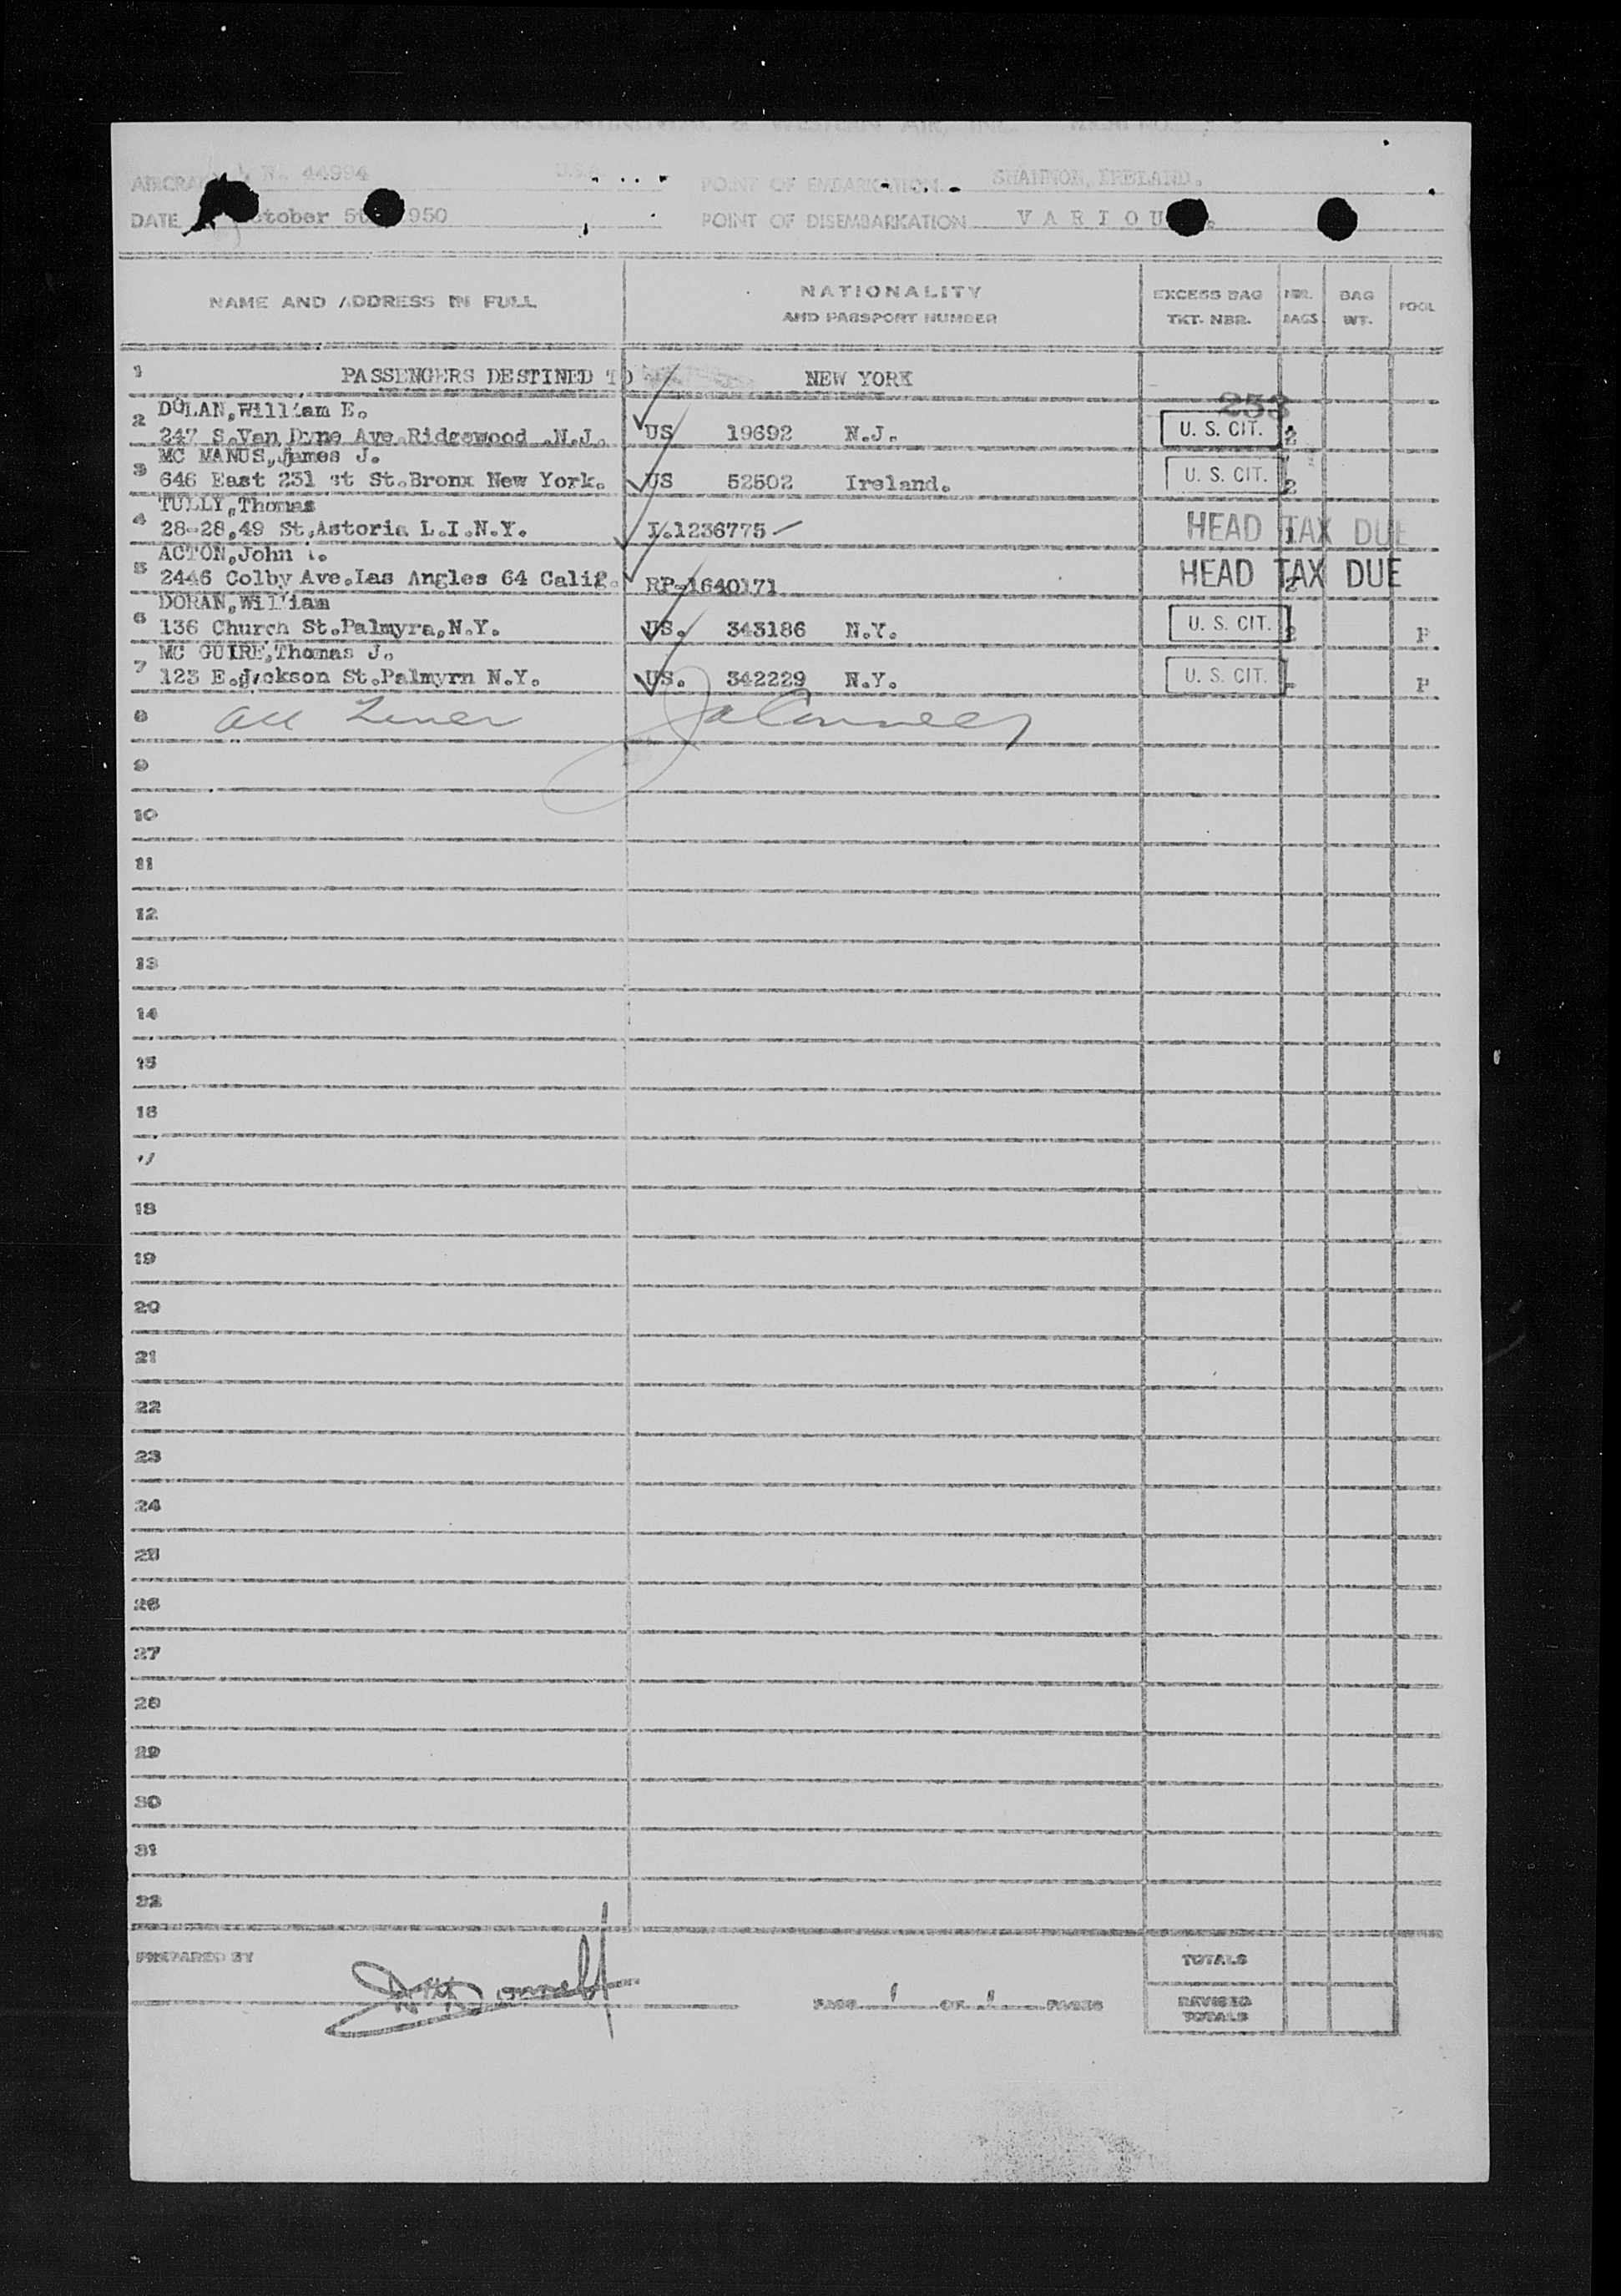 TRANSCONTINENTAL & WESTERN AIR, INC.
AIRCRAFT N. 44994 U.S.A. POINT OF EMBARKATION SHANNON, IRELAND.
DATE October 5th 1950 POINT OF DISEMBARKATION VARIOUS.
NAME AND ADDRESS IN FULL NATIONALITY AND PASSPORT NUMBER EXCESS BAG TKT. NBR. NBR. BAGS BAG WT. POOL
1 PASSENGERS DESTINED TO NEW YORK
253
DOLAN, William E.
2 247 S. Van Dyne Ave Ridgewood .N.J. US 19692 N.J. U. S. CIT. 2
MC MANUS, James J.
3 646 East 231 st St. Bronx New York. US 52502 Ireland. U. S. CIT. 2
TULLY, Thomas
4 28-28, 49 St, Astoria L.I.N.Y. I.1236775 HEAD TAX DUE 1
ACTON, John
5 2446 Colby Ave. Las Angles 64 Calif. RP-1640171 HEAD TAX DUE 2
DORAN, William
6 136 Church St. Palmyra, N.Y. US. 343186 N.Y. U. S. CIT. 2 P
MC GUIRE, Thomas J.
7 123 E. Jackson St. Palmyrn N.Y. US. 342229 N.Y. U. S. CIT. P
8 All
9
10
11
12
13
14
15
16
17
18
19
20
21
22
23
24
25
26
27
28
29
30
31
32
PREPARED BY TOTALS
PAGE 1 OF 1 PAGES REVISED TOTALS